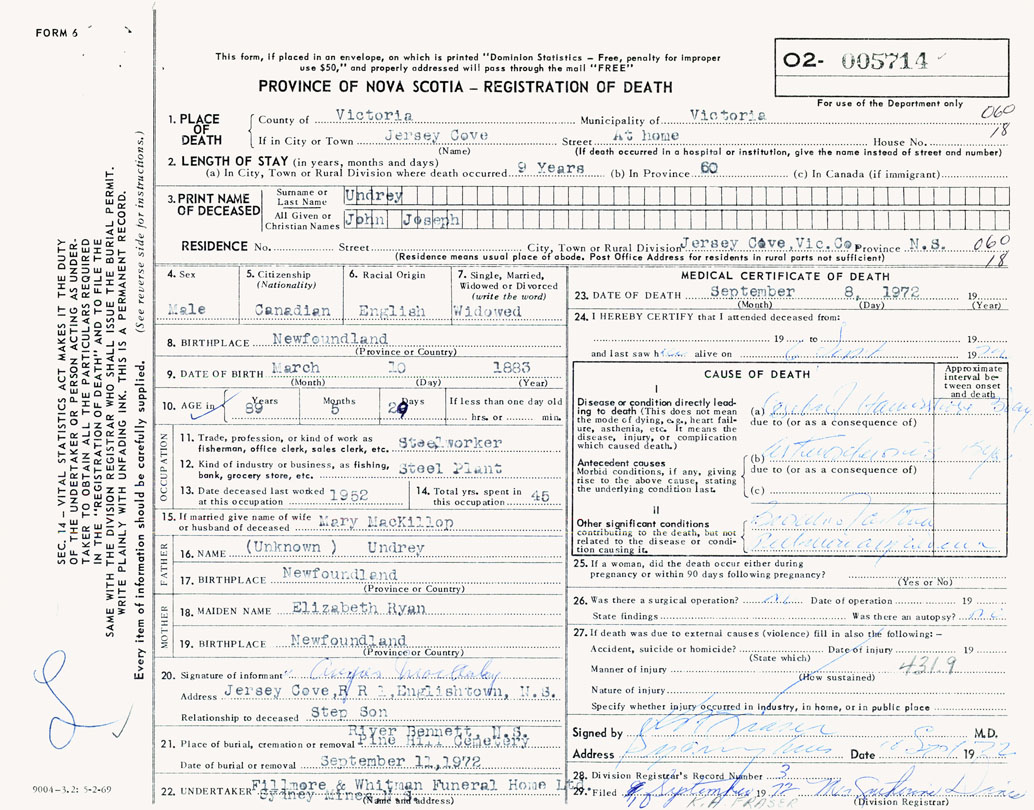 FORM 6
This form, if placed in an envelope, on which is printed "Dominion Statistics – Free, penalty for improper
use $50," and properly addressed will pass through the mail "FREE"
PROVINCE OF NOVA SCOTIA – REGISTRATION OF DEATH
O2- 005714
For use of the Department only
060
18
1. PLACE OF DEATH
County of Victoria Municipality of Victoria
If in City or Town Jersey Cove Street At home House No.
(Name) (If death occurred in a hospital or institution, give the name instead of street and number)
2. LENGTH OF STAY (in years, months and days)
(a) In City, Town or Rural Division where death occurred 9 Years (b) In Province 60 (c) In Canada (if immigrant)
3. PRINT NAME OF DECEASED
Surname or Last Name Undrey
All Given or Christian Names John Joseph
RESIDENCE No. Street City, Town or Rural Division Jersey Cove, Vic. Co Province N.S. 060
(Residence means usual place of abode. Post Office Address for residents in rural parts not sufficient) 18
4. Sex
Male
5. Citizenship
(Nationality)
Canadian
6. Racial Origin
English
7. Single, Married,
Widowed or Divorced
(write the word)
Widowed
8. BIRTHPLACE Newfoundland
(Province or Country)
9. DATE OF BIRTH March 10 1883
(Month) (Day) (Year)
10. AGE in Years Months Days If less than one day old
89 5 29 hrs. or min.
OCCUPATION
11. Trade, profession, or kind of work as
fisherman, office clerk, sales clerk, etc. Steelworker
12. Kind of industry or business, as fishing,
bank, grocery store, etc. Steel Plant
13. Date deceased last worked
at this occupation 1952
14. Total yrs. spent in
this occupation 45
15. If married give name of wife
or husband of deceased Mary MacKillop
FATHER
16. NAME (Unknown ) Undrey
17. BIRTHPLACE Newfoundland
(Province or Country)
MOTHER
18. MAIDEN NAME Elizabeth Ryan
19. BIRTHPLACE Newfoundland
(Province or Country)
20. Signature of informant
Address Jersey Cove, R R 1, Englishtown, N.S.
Relationship to deceased Step Son
River Bennett, N.S.
21. Place of burial, cremation or removal Pine Hill Cemetery
Date of burial or removal September 11,1972
Fillmore & Whitman Funeral Home Ltd
22. UNDERTAKER Sydney Mines N.S.
(Name and address)
MEDICAL CERTIFICATE OF DEATH
23. DATE OF DEATH September 8, 1972 19
(Month) (Day) (Year)
24. I HEREBY CERTIFY that I attended deceased from:
19 to
and last saw h alive on 6 Sept 19 72
CAUSE OF DEATH
Approximate
interval be-
tween onset
and death
I
Disease or condition directly lead-
ing to death (This does not mean
the mode of dying, e.g., heart fail-
ure, asthenia, etc. It means the
disease, injury, or complication
which caused death.)
(a) Cerebral
due to (or as a consequence of)
Antecedent causes
Morbid conditions, if any, giving
rise to the above cause, stating
the underlying condition last.
(b)
due to (or as a consequence of)
(c)
II
Other significant conditions
contributing to the death, but not
related to the disease or condi-
tion causing it.
25. If a woman, did the death occur either during
pregnancy or within 90 days following pregnancy?
(Yes or No)
26. Was there a surgical operation? Date of operation 19
State findings Was there an autopsy?
27. If death was due to external causes (violence) fill in also the following: –
Accident, suicide or homicide? Date of injury 19
(State which)
Manner of injury 431.9
(How sustained)
Nature of injury
Specify whether injury occurred in industry, in home, or in public place
Signed by M.D.
Address Sydney Mines Date 10 Sept 19 72
28. Division Registrar's Record Number 3
29. Filed September 19 72 Mrs
K. A FRASER (Division Registrar)
SEC. 14 – VITAL STATISTICS ACT MAKES IT THE DUTY
OF THE UNDERTAKER OR PERSON ACTING AS UNDER-
TAKER TO OBTAIN ALL THE PARTICULARS REQUIRED
IN THE "REGISTRATION OF DEATH" AND TO FILE THE
SAME WITH THE DIVISION REGISTRAR WHO SHALL ISSUE THE BURIAL PERMIT.
WRITE PLAINLY WITH UNFADING INK. THIS IS A PERMANENT RECORD.
Every item of information should be carefully supplied. (See reverse side for instructions.)
9004-3.2: 5-2-69